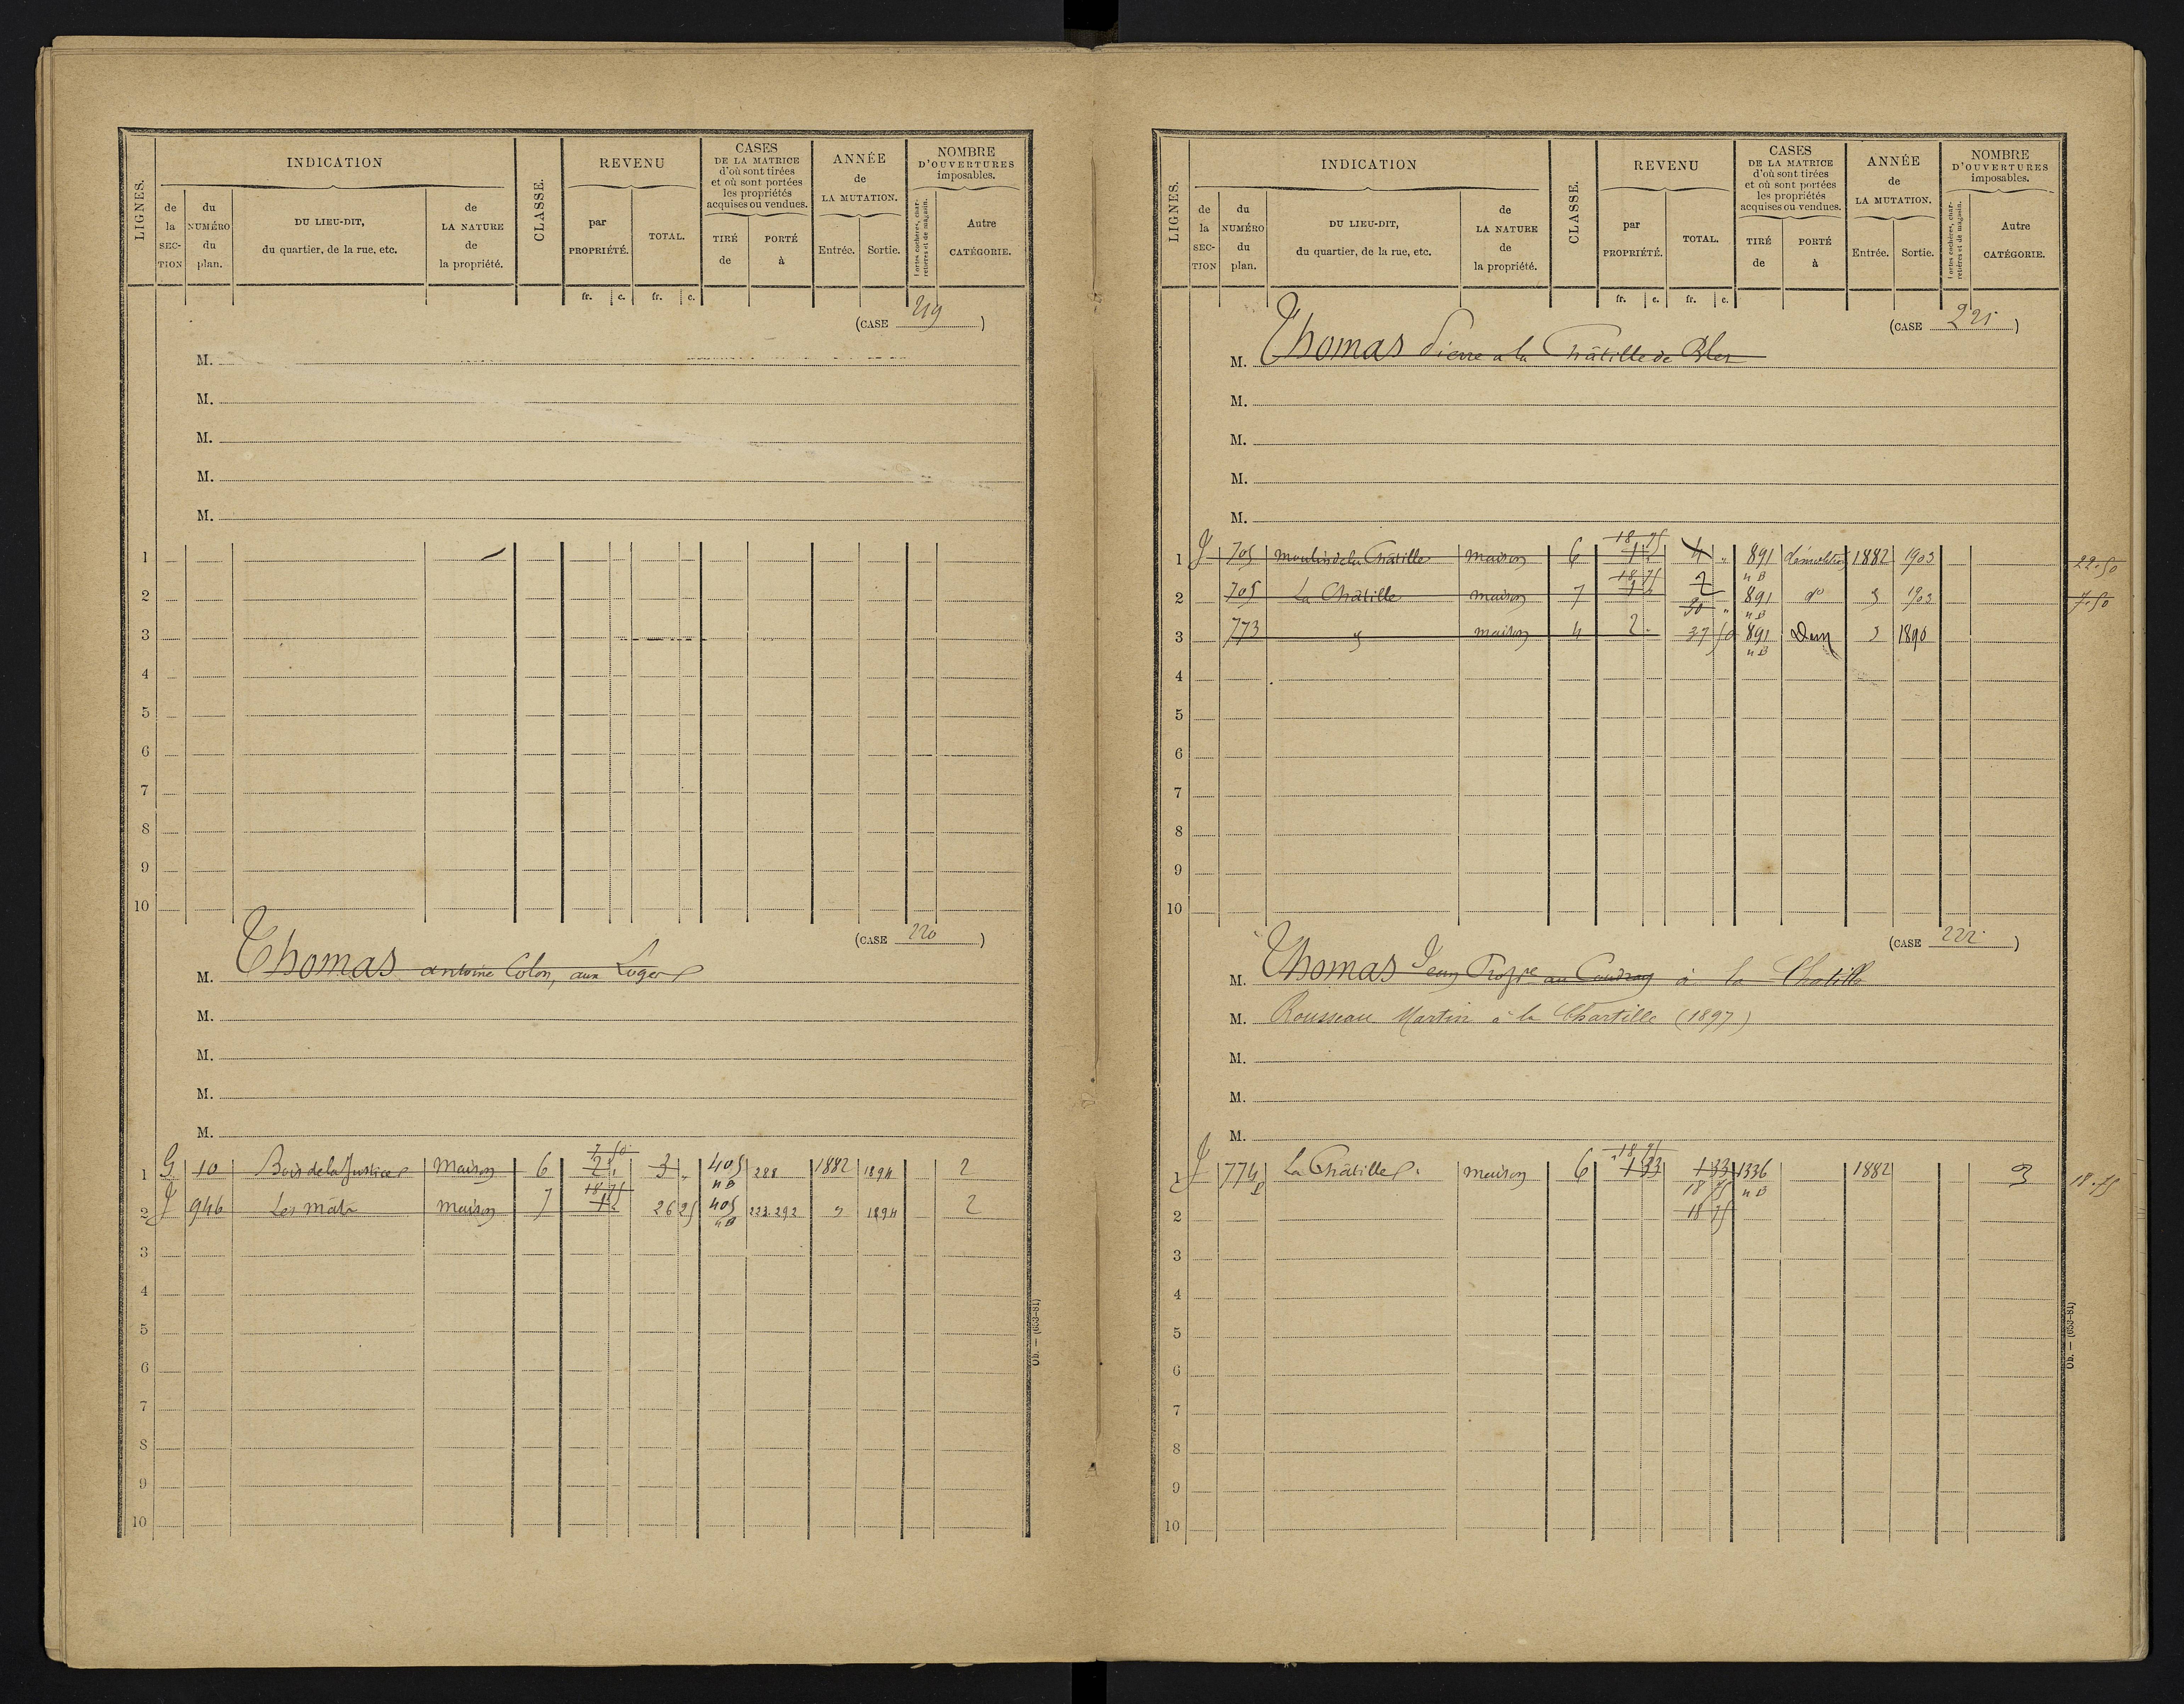 LIGNES.
INDICATION
de la SECTION
du NUMÉRO du plan.
DU LIEU-DIT, du quartier, de la rue, etc.
de LA NATURE de la propriété.
CLASSE.
REVENU
par PROPRIÉTÉ.
TOTAL.
CASES DE LA MATRICE d'où sont tirées et où sont portées les propriétés acquises ou vendues.
TIRÉ de
PORTÉ à
ANNÉE de LA MUTATION.
Entrée.
Sortie.
NOMBRE D'OUVERTURES imposables.
Portes cochères, charretières et de magasin.
Autre CATÉGORIE.
fr. c. fr. c.
(CASE 219)
M.
M.
M.
M.
M.
1
2
3
4
5
6
7
8
9
10
(CASE 220)
M. Thomas antoine Colon, aux Loges
M.
M.
M.
M.
1 G 10 Bois de la Justice Maison 6 7 50 2 " 3 " 405 nB 288 1882 1894 2
2 J 946 Les mats maison 7 18 75 1 " 26 25 405 nB 223.292 " 1894 2
3
4
5
6
7
8
9
10
Ob. — (653-81)
LIGNES.
INDICATION
de la SECTION
du NUMÉRO du plan.
DU LIEU-DIT, du quartier, de la rue, etc.
de LA NATURE de la propriété.
CLASSE.
REVENU
par PROPRIÉTÉ.
TOTAL.
CASES DE LA MATRICE d'où sont tirées et où sont portées les propriétés acquises ou vendues.
TIRÉ de
PORTÉ à
ANNÉE de LA MUTATION.
Entrée.
Sortie.
NOMBRE D'OUVERTURES imposables.
Portes cochères, charretières et de magasin.
Autre CATÉGORIE.
fr. c. fr. c.
(CASE 221)
M. Thomas Pierre a la Châtille de
M.
M.
M.
M.
1 J 705 moulin de la Châtille maison 6 18 75 1 " 4 " 891 nB démolition 1882 1903 22.50
2 705 La Châtille maison 7 18 75 2 891 nB do " 1903 7.50
3 773 " maison 4 2 . 30 " 37 50 891 nB Dem " 1890
4
5
6
7
8
9
10
(CASE 222)
M. Thomas Jean Propre au Coudray à la Chatille
M. Rousseau Martin à la Chartille (1897)
M.
M.
M.
1 J 774 La Châtille maison 6 18 75 1 33 1 33 1336 nB 1882 3 18.75
18 75
2 18 75
3
4
5
6
7
8
9
10
Ob. — (653-81)